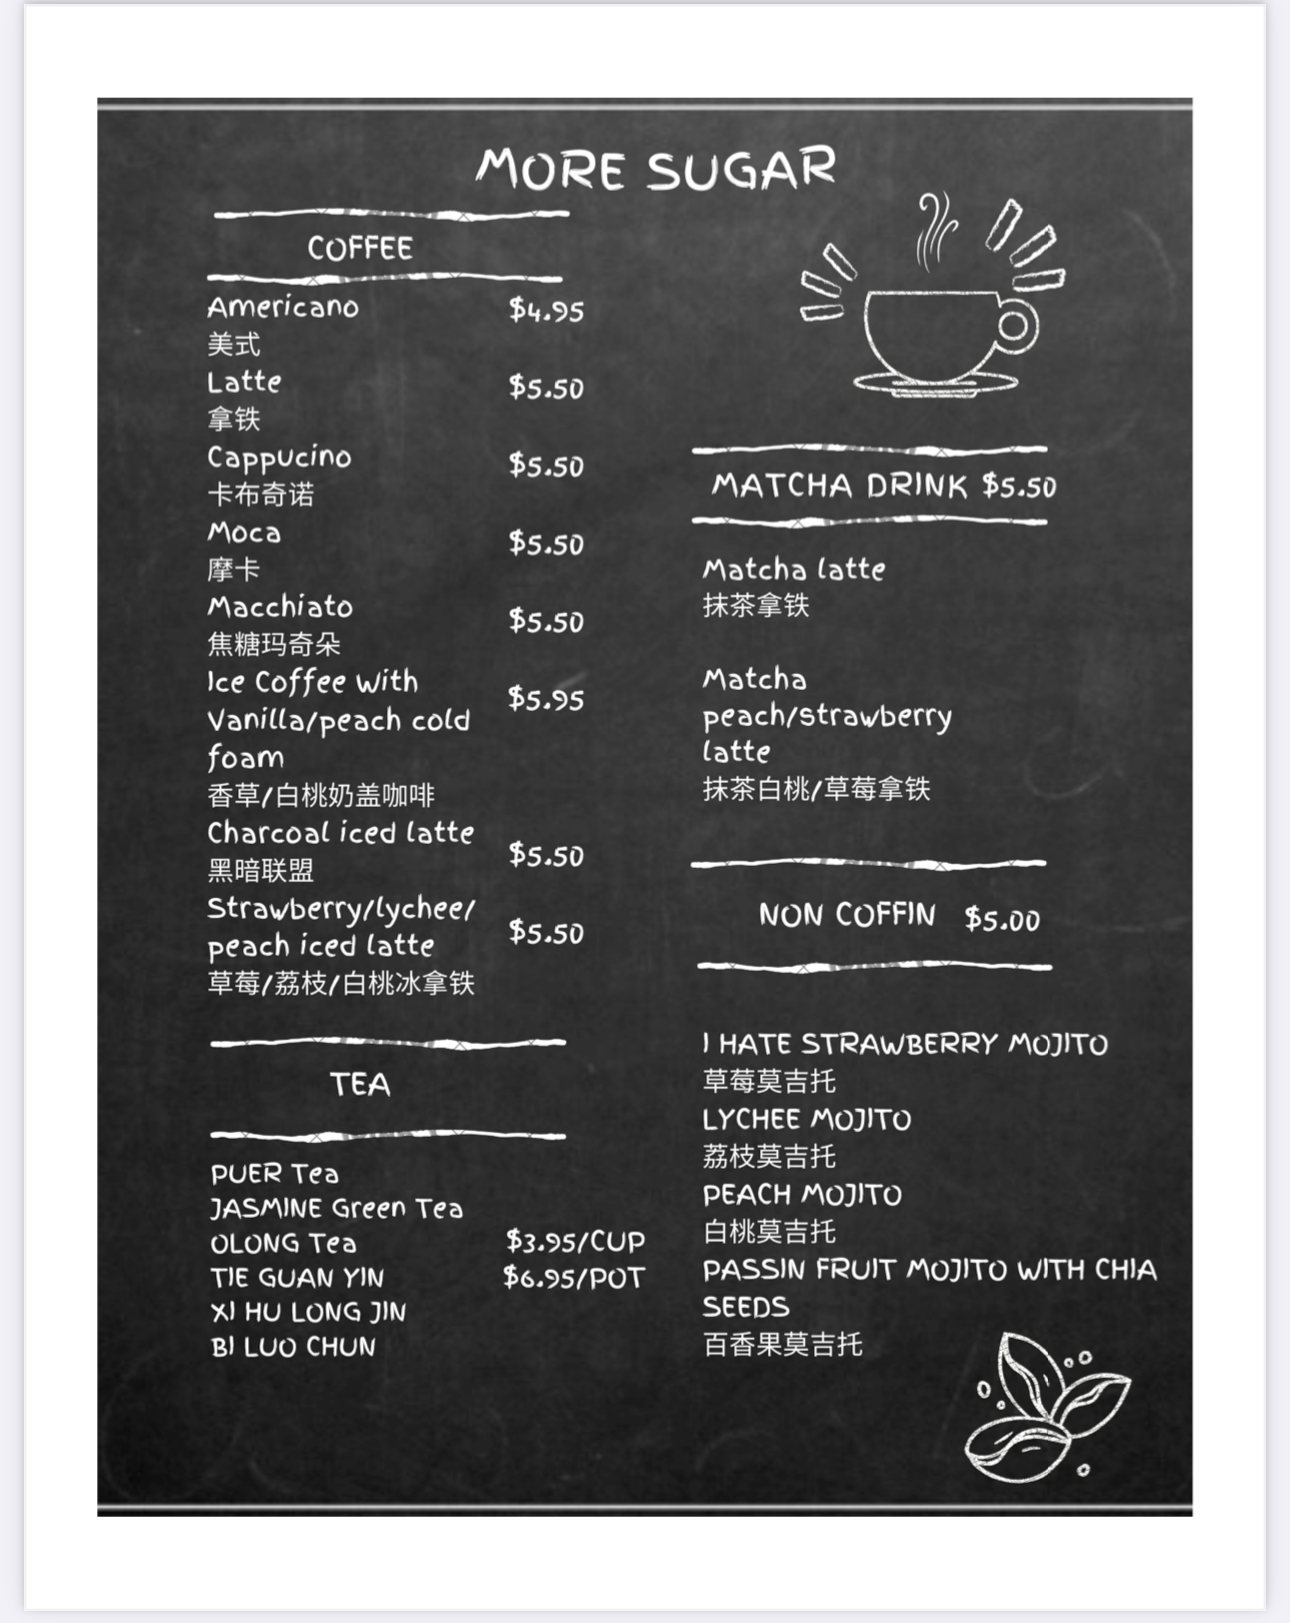 MORE SUGAR
COFFEE
Americano $4.95
美式
Latte $5.50
拿铁
Cappucino $5.50
卡布奇诺
Moca $5.50
摩卡
Macchiato $5.50
焦糖玛奇朵
Ice Coffee with $5.95
Vanilla/peach cold
foam
香草/白桃奶盖咖啡
Charcoal iced latte $5.50
黑暗联盟
Strawberry/lychee/ $5.50
peach iced latte
草莓/荔枝/白桃冰拿铁
TEA
PUER Tea
JASMINE Green Tea
OLONG Tea $3.95/CUP
TIE GUAN YIN $6.95/POT
XI HU LONG JIN
BI LUO CHUN
MATCHA DRINK $5.50
Matcha latte
抹茶拿铁
Matcha
peach/strawberry
latte
抹茶白桃/草莓拿铁
NON COFFIN $5.00
I HATE STRAWBERRY MOJITO
草莓莫吉托
LYCHEE MOJITO
荔枝莫吉托
PEACH MOJITO
白桃莫吉托
PASSIN FRUIT MOJITO WITH CHIA
SEEDS
百香果莫吉托